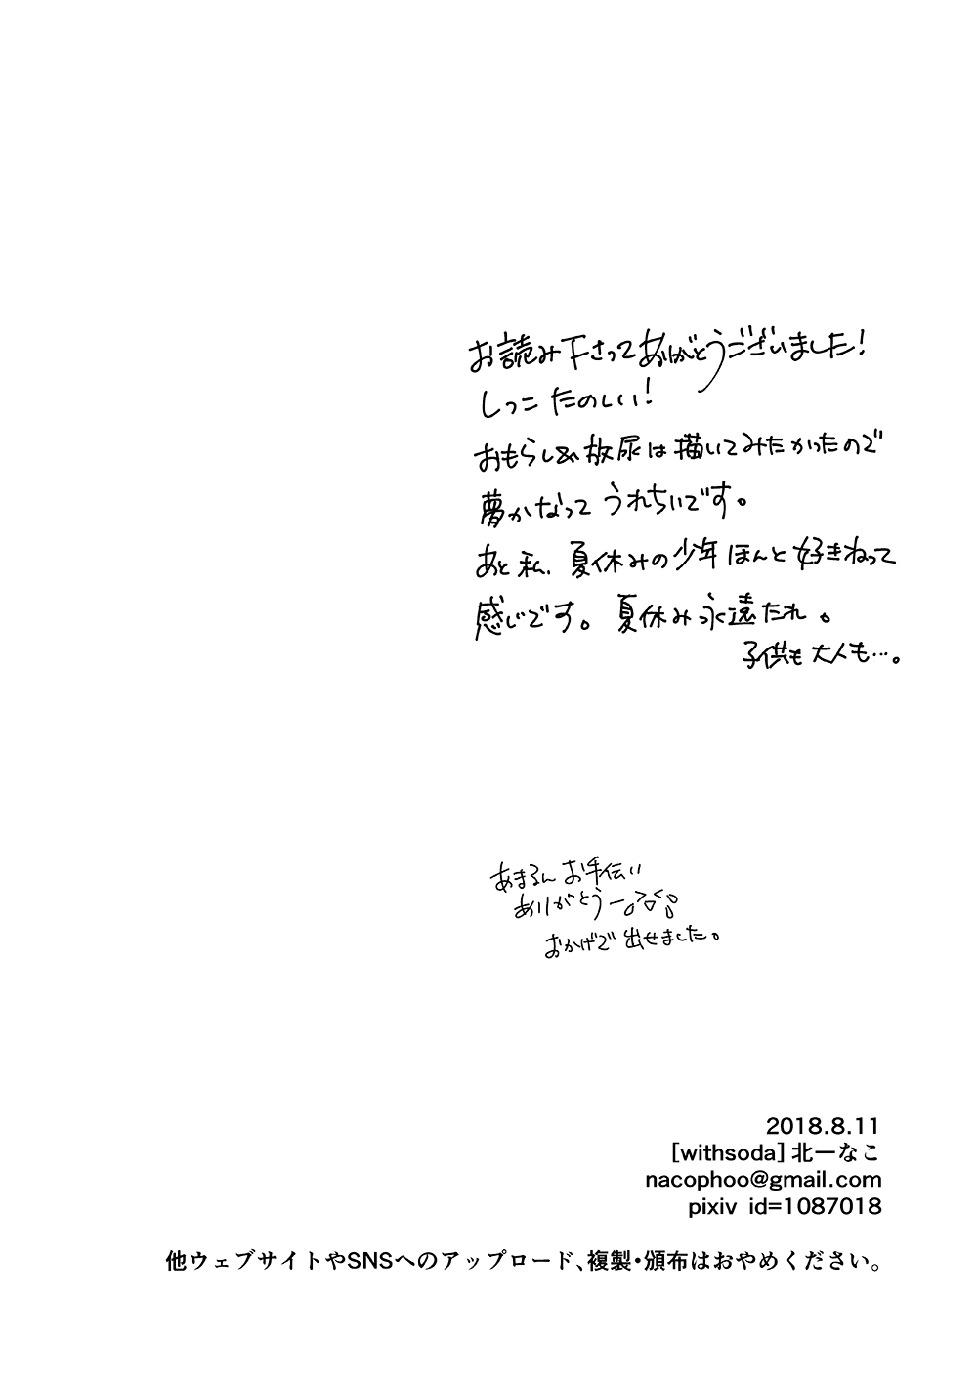 お読み下さってありがとうございました!
しっこ たのしい!
おもらし&放尿は描いてみたかったので
夢かなって うれちいです。
あと 私、夏休みの少年 ほんと好きねって
感じです。夏休み永遠たれ。
子供も大人も…。
あまるん お手伝い
ありがとうー
おかげで 出せました。
2018.8.11
[withsoda]北一なこ
nacophoo@gmail.com
pixiv id=1087018
他ウェブサイトやSNSへのアップロード、複製・頒布はおやめください。